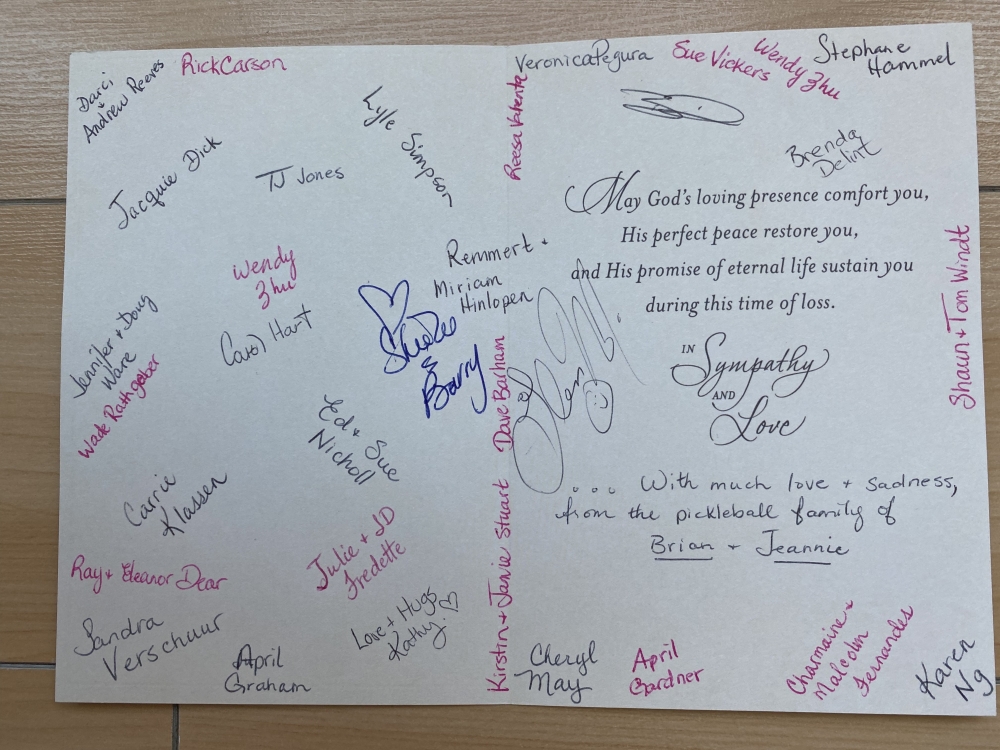 Darci
+
Andrew Reeves
Rick Carson
Lyle Simpson
Jacquie Dick
TJ Jones
Wendy
Zhu
Carol Hart
Remmert +
Miriam
Hinlopen
&
Barry
Jennifer + Doug
Ware
Wade Rathgeber
Ed + Sue
Nicholl
Carrie
Klassen
Ray + Eleanor Dear
Julie + JD
Fredette
Sandra
Verschuur
April
Graham
Love + Hugs
Kathy!
Veronica Pegura
Sue Vickers
Wendy Zhu
Stephane
Hammel
Reesa Valente
Brenda
Delint
May God's loving presence comfort you,
His perfect peace restore you,
and His promise of eternal life sustain you
during this time of loss.
IN
Sympathy
AND
Love
Shaun + Tom Windt
Dave Barham
Kirstin + Janie Stuart
... With much love + sadness,
from the pickleball family of
Brian + Jeannie
Cheryl
May
April
Gardner
Charmaine +
Malcolm
Fernandes
Karen
Ng